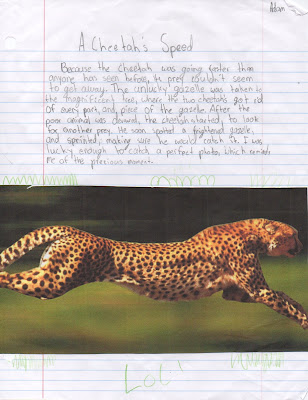 Adam
A Cheetah's Speed
Because the cheetah was going faster than
anyone has seen before, it's prey couldn't seem
to get away. The unlucky gazelle was taken to
the magnificent tree, where the two cheetahs got rid
of every part, and piece of the gazelle. After the
poor animal was devoured, the cheetah started to look
for another prey. He soon spotted a frightened gazelle,
and sprinted, making sure he would catch it. I was
lucky enough to catch a perfect photo, which reminds
me of the previous moment.
LOL!